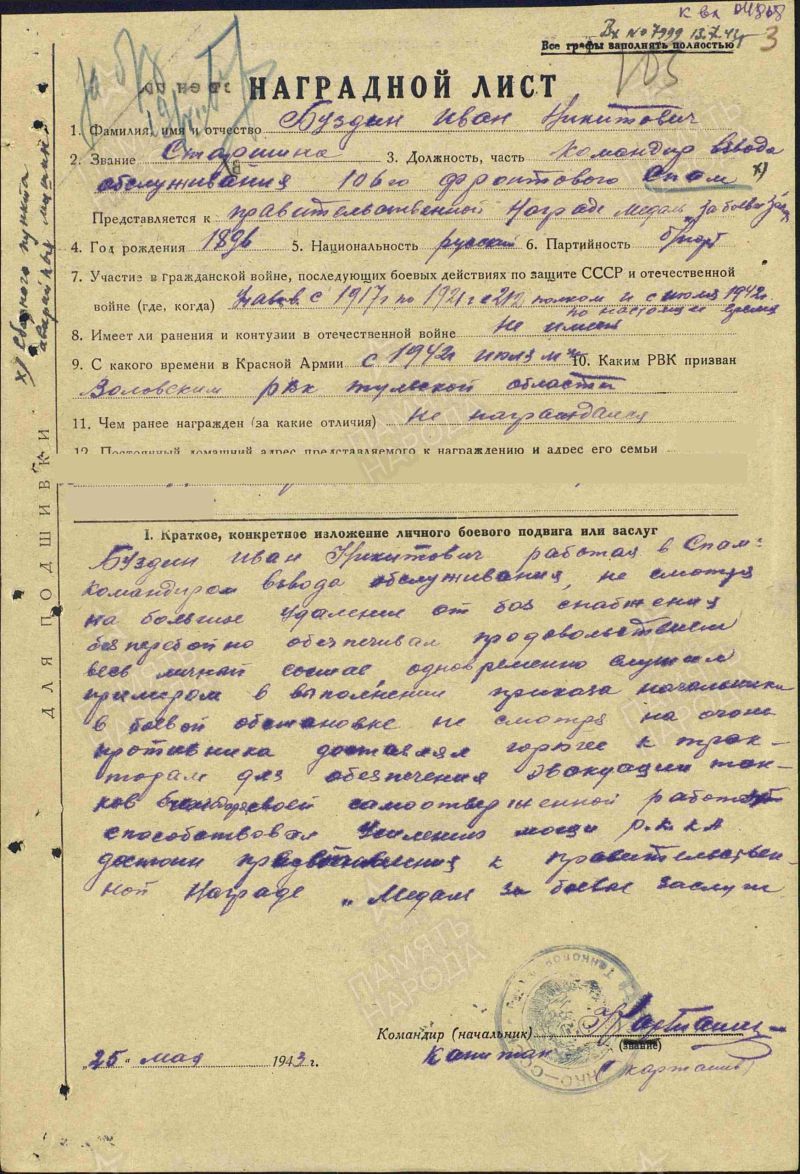 Вх №7999 13.7.43
Все графы заполнять полностью
3
НАГРАДНОЙ ЛИСТ
1. Фамилия, имя и отчество Буздин Иван Никитович
2. Звание Старшина 3. Должность, часть Командир взвода
обслуживания 106го фронтового Спам х)
Представляется к правительственной Награде Медаль за боевые
4. Год рождения 1896 5. Национальность русский 6. Партийность
7. Участие в гражданской войне, последующих боевых действиях по защите СССР и отечественной
войне (где, когда) с 1917г по 1921г с 212 полком и с июля 1942г
по настоящее время
8. Имеет ли ранения и контузии в отечественной войне не имеет
9. С какого времени в Красной Армии с 1942г июля м-ца 10. Каким РВК призван
Воловским рвк тульской области
11. Чем ранее награжден (за какие отличия) не награждался
12. Постоянный домашний адрес представляемого к награждению и адрес его семьи
I. Краткое, конкретное изложение личного боевого подвига или заслуг
Буздин Иван Никитович работая в Спам-
командиром взвода обслуживания, не смотря
на большое удаление от баз снабжения
бесперебойно обеспечивал продовольствием
весь личный состав, одновременно служит
примером в выполнении приказа начальника
в боевой обстановке не смотря на огонь
противника доставлял горючее к трак-
торам для обеспечения эвакуации тан-
ков своей самоотверженной работой
способствовал усилению мощи Р.К.К.А
достоин представления к правительствен-
ной Награде „Медаль За боевые заслуги
Командир (начальник)
Капитан (звание)
(карташов)
25 мая 1943 г.
х) Сборного пункта
аварийных машин
ДЛЯ ПОДШИВКИ
ПАМЯТЬ НАРОДА